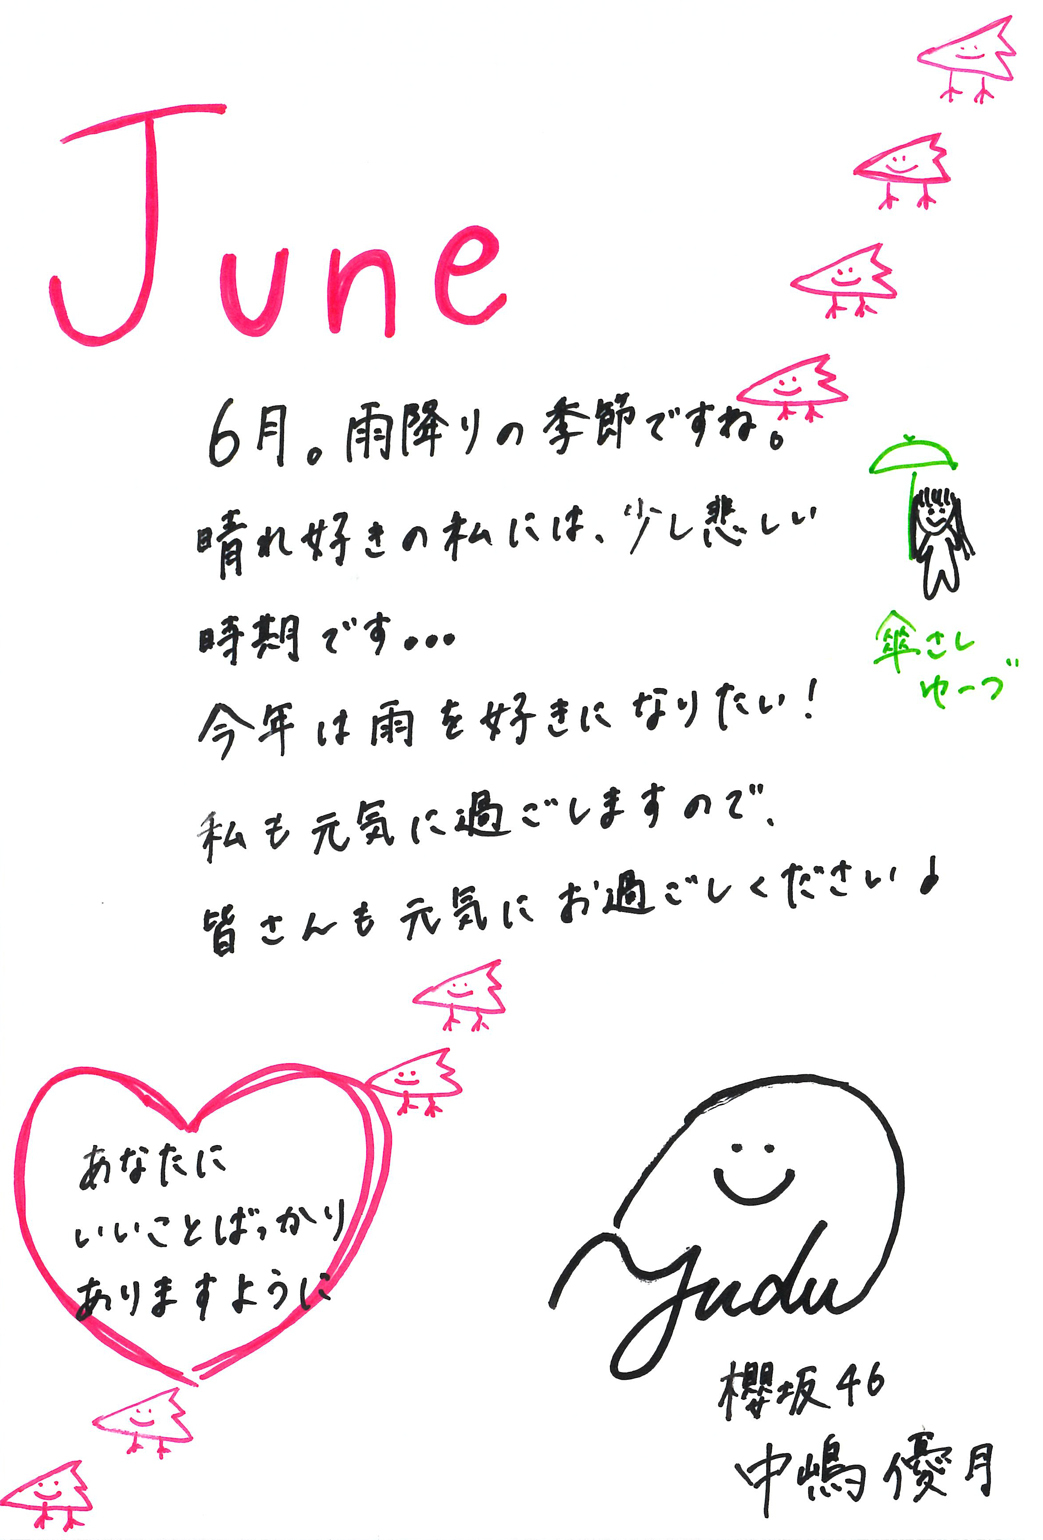 June
6月。雨降りの季節ですね。
晴れ好きの私には、少し悲しい
時期です...
今年は雨を好きになりたい!
私も元気に過ごしますので、
皆さんも元気にお過ごしください♪
傘さし
ゆーづ
あなたに
いいことばっかり
ありますように
yudu
櫻坂46
中嶋優月